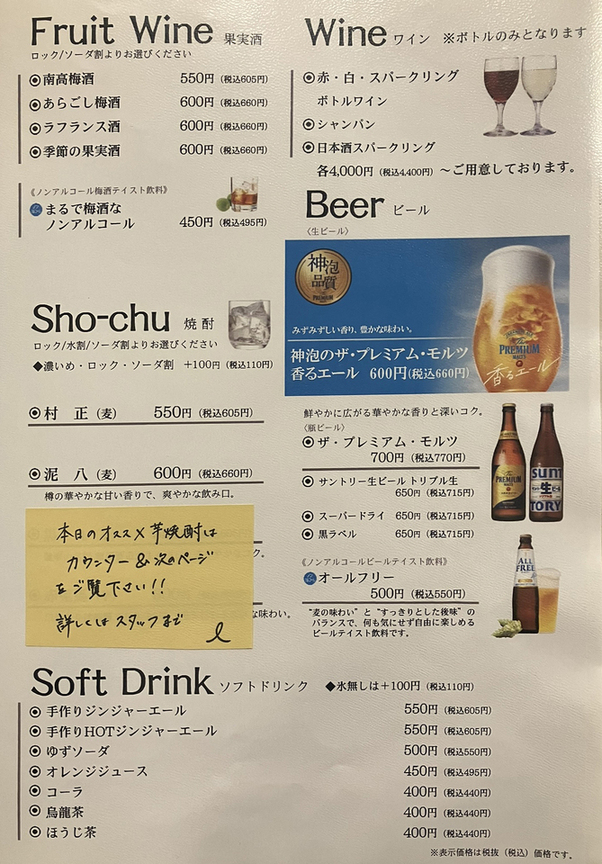 Fruit Wine 果実酒
ロック/ソーダ割よりお選びください
南高梅酒 550円(税込605円)
あらごし梅酒 600円(税込660円)
ラフランス酒 600円(税込660円)
季節の果実酒 600円(税込660円)
《ノンアルコール梅酒テイスト飲料》
まるで梅酒な
ノンアルコール 450円(税込495円)
Sho-chu 焼酎
ロック/水割/ソーダ割よりお選びください
◆濃いめ・ロック・ソーダ割 +100円(税込110円)
村 正(麦) 550円(税込605円)
泥 八(麦) 600円(税込660円)
樽の華やかな甘い香りで、爽やかな飲み口。
本日のオススメ芋焼酎は
カウンター&次のページ
をご覧下さい!!
詳しくはスタッフまで
な味わい。
Wine ワイン ※ボトルのみとなります
赤・白・スパークリング
ボトルワイン
シャンパン
日本酒スパークリング
各4,000円(税込4,400円)〜ご用意しております。
Beer ビール
〈生ビール〉
神泡
品質
PREMIUM
みずみずしい香り、豊かな味わい。
神泡のザ・プレミアム・モルツ
香るエール 600円(税込660円)
The
PREMIUM
MALT'S
香るエール
鮮やかに広がる華やかな香りと深いコク。
〈瓶ビール〉
ザ・プレミアム・モルツ
700円(税込770円)
サントリー生ビール トリプル生
650円(税込715円)
スーパードライ 650円(税込715円)
黒ラベル 650円(税込715円)
PREMIUM
SUN
生
TORY
《ノンアルコールビールテイスト飲料》
オールフリー
500円(税込550円)
ALL
FREE
“麦の味わい”と“すっきりとした後味”の
バランスで、何も気にせず自由に楽しめる
ビールテイスト飲料です。
Soft Drink ソフトドリンク ◆氷無しは+100円(税込110円)
手作りジンジャーエール 550円(税込605円)
手作りHOTジンジャーエール 550円(税込605円)
ゆずソーダ 500円(税込550円)
オレンジジュース 450円(税込495円)
コーラ 400円(税込440円)
烏龍茶 400円(税込440円)
ほうじ茶 400円(税込440円)
※表示価格は税抜(税込)価格です。